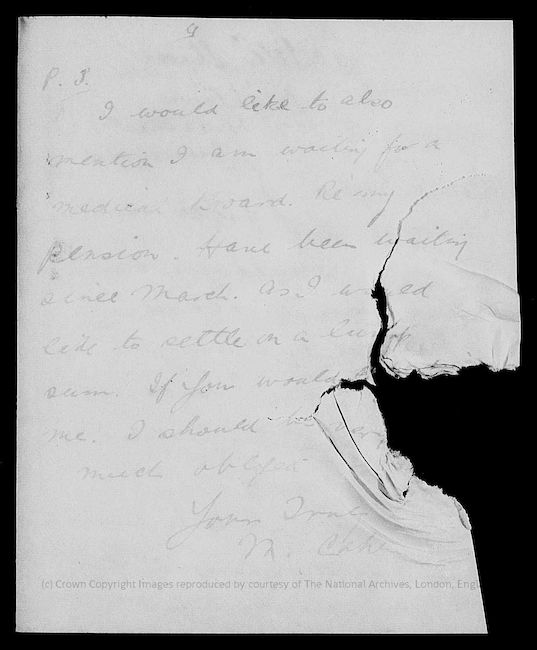 9
P. S.
I would like to also
mention I am waiting for a
medical board. Re my
pension. Have been waiting
since March. As I would
like to settle on a lump
sum. If you would
me. I should be very
much obliged
Yours Truly
M.
(c) Crown Copyright Images reproduced by courtesy of The National Archives, London, Eng